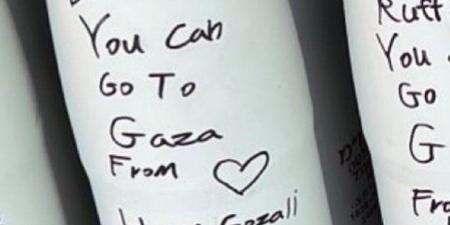 You can
Go To
Gaza
From ♡
Gozali
Ruff
You
Go
G
Fro